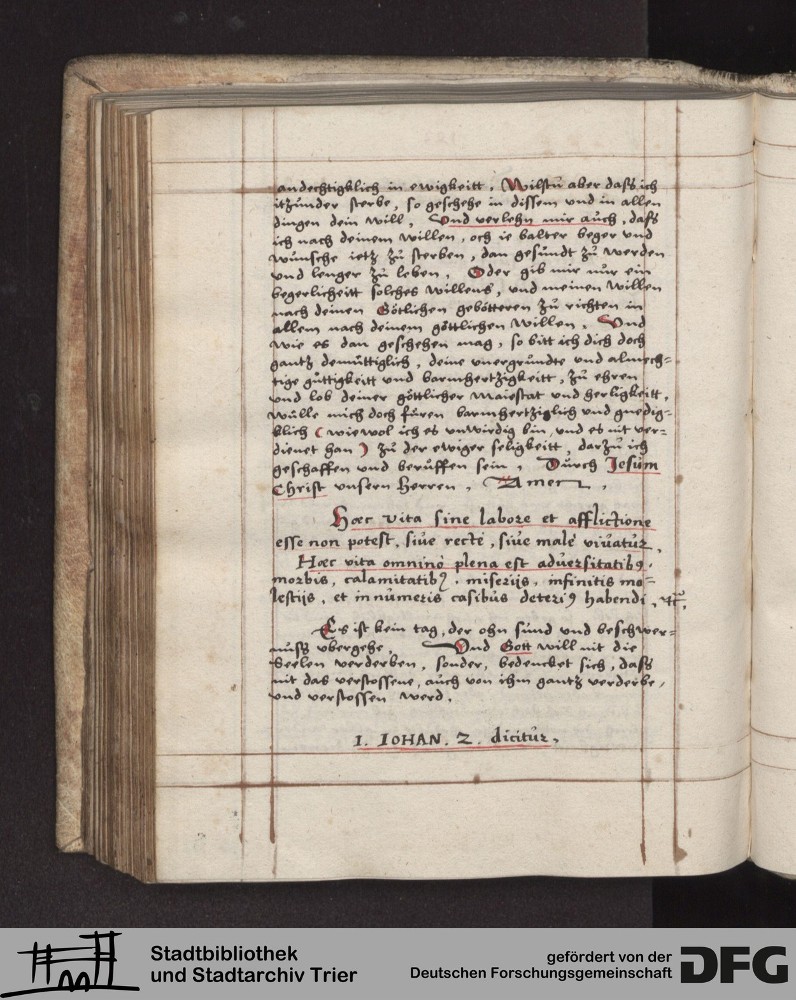 andechtigklich in ewigkeitt. Wilstu aber dass ich
itzunder sterbe, so geschehe in dissem und in allen
dingen dein will. Und verlehn mir auch, dass
ich nach deinem willen, och ie balter beger und
wunsche ietz zu sterben, dan gesundt zu werden
und lenger zu leben. Oder gib mir nur ein
begerlicheitt solches willens, und meinen willen
nach deinen Götlichen gebötteren zu richten in
allem nach deinem göttlichen willen. Und
wie es dan geschehen mag, so bitt ich dich doch
gantz demüttiglich, deine unergrundte und almech=
tige güttigkeitt und barmhertzigkeitt, zu ehren
und lob deiner göttlicher Maiestat und herligkeitt,
wülle mich doch füren barmhertziglich und gnedig=
klich (wiewol ich es unwirdig bin, und es nit ver=
dienet han) zu der ewiger seligkeitt, darzu ich
geschaffen und beruffen sein. Durch Jesum
Christ unsern Herren. Amen.
Hæc vita sine labore et afflictione
esse non potest, siue recte, siue male viuatur.
Hæc vita omnino plena est aduersitatibꝰ.
morbis, calamitatibꝰ. miserijs, infinitis mo=
lestijs, et innumeris casibus deteriꝰ habendi, etc.
Es ist kein tag, der ohn sund und beschwer=
nuss ubergehe. Und Gott will nit die
Seelen verderben, sonder, bedencket sich, dass
nit das verstossene, auch von ihm gantz verderbe,
und verstossen werd.
1. IOHAN. 2. dicitur.
Stadtbibliothek
und Stadtarchiv Trier
gefördert von der
Deutschen Forschungsgemeinschaft
DFG